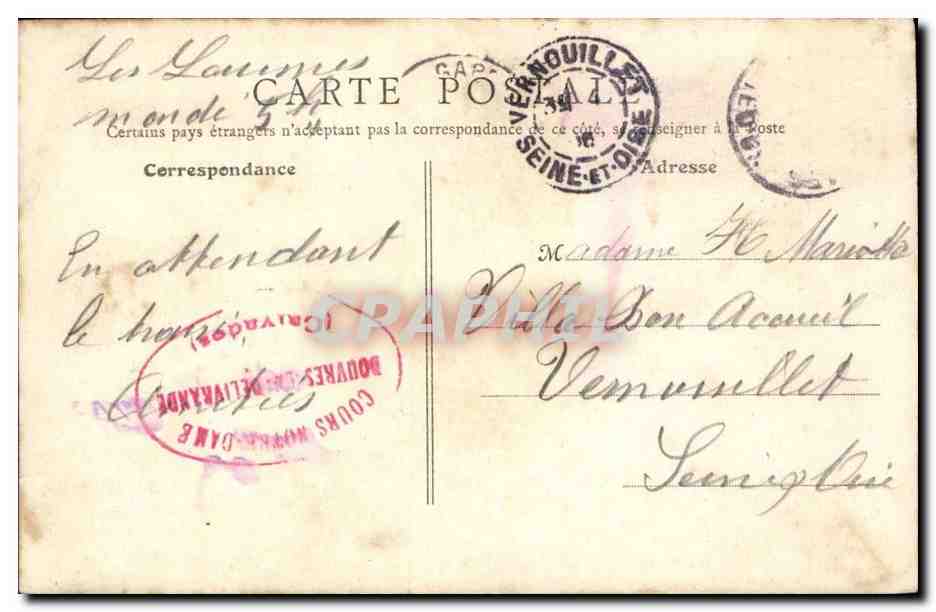 Les Laumes
CARTE POSTALE
Certains pays étrangers n'acceptant pas la correspondance de ce côté, se renseigner à la Poste
Correspondance
Adresse
VERNOUILLET
SEINE-ET-OISE
GARE
En attendant
le
COURS NOTRE-DAME
DOUVRES-LA-DELIVRANDE
(Calvados)
Madame H Mariotte
Villa Bon Accueil
Vernouillet
Seine & Oise
CPAPHIL